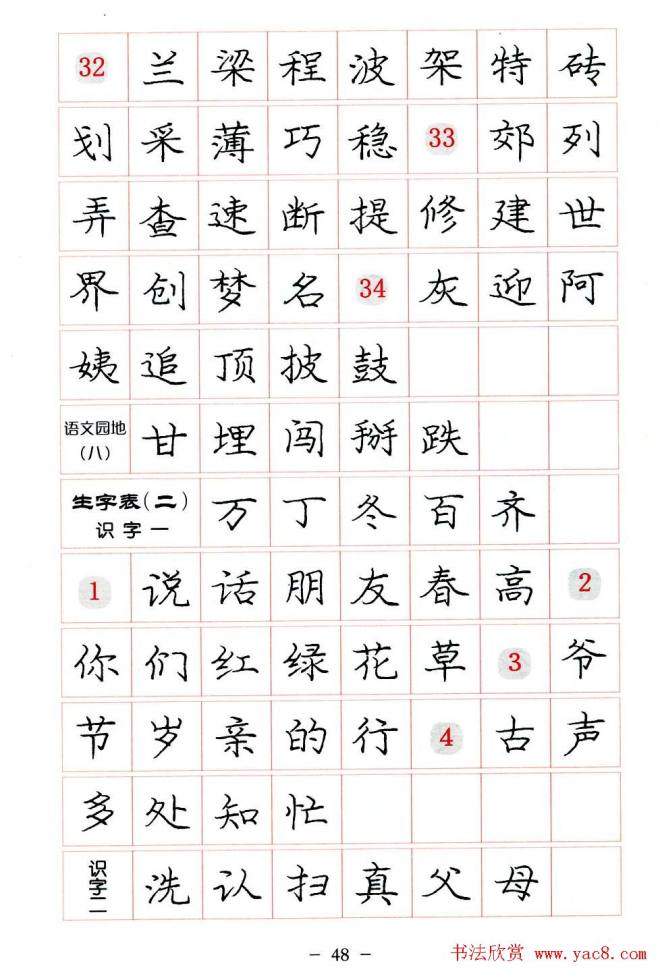 32 兰 梁 程 波 架 特 砖
划 采 薄 巧 稳 33 郊 列
弄 查 速 断 提 修 建 世
界 创 梦 名 34 灰 迎 阿
姨 追 顶 披 鼓
语文园地(八) 甘 埋 闯 掰 跌
生字表(二) 识字一 万 丁 冬 百 齐
1 说 话 朋 友 春 高 2
你 们 红 绿 花 草 3 爷
节 岁 亲 的 行 4 古 声
多 处 知 忙
识字二 洗 认 扫 真 父 母
- 48 -
书法欣赏 www.yac8.com